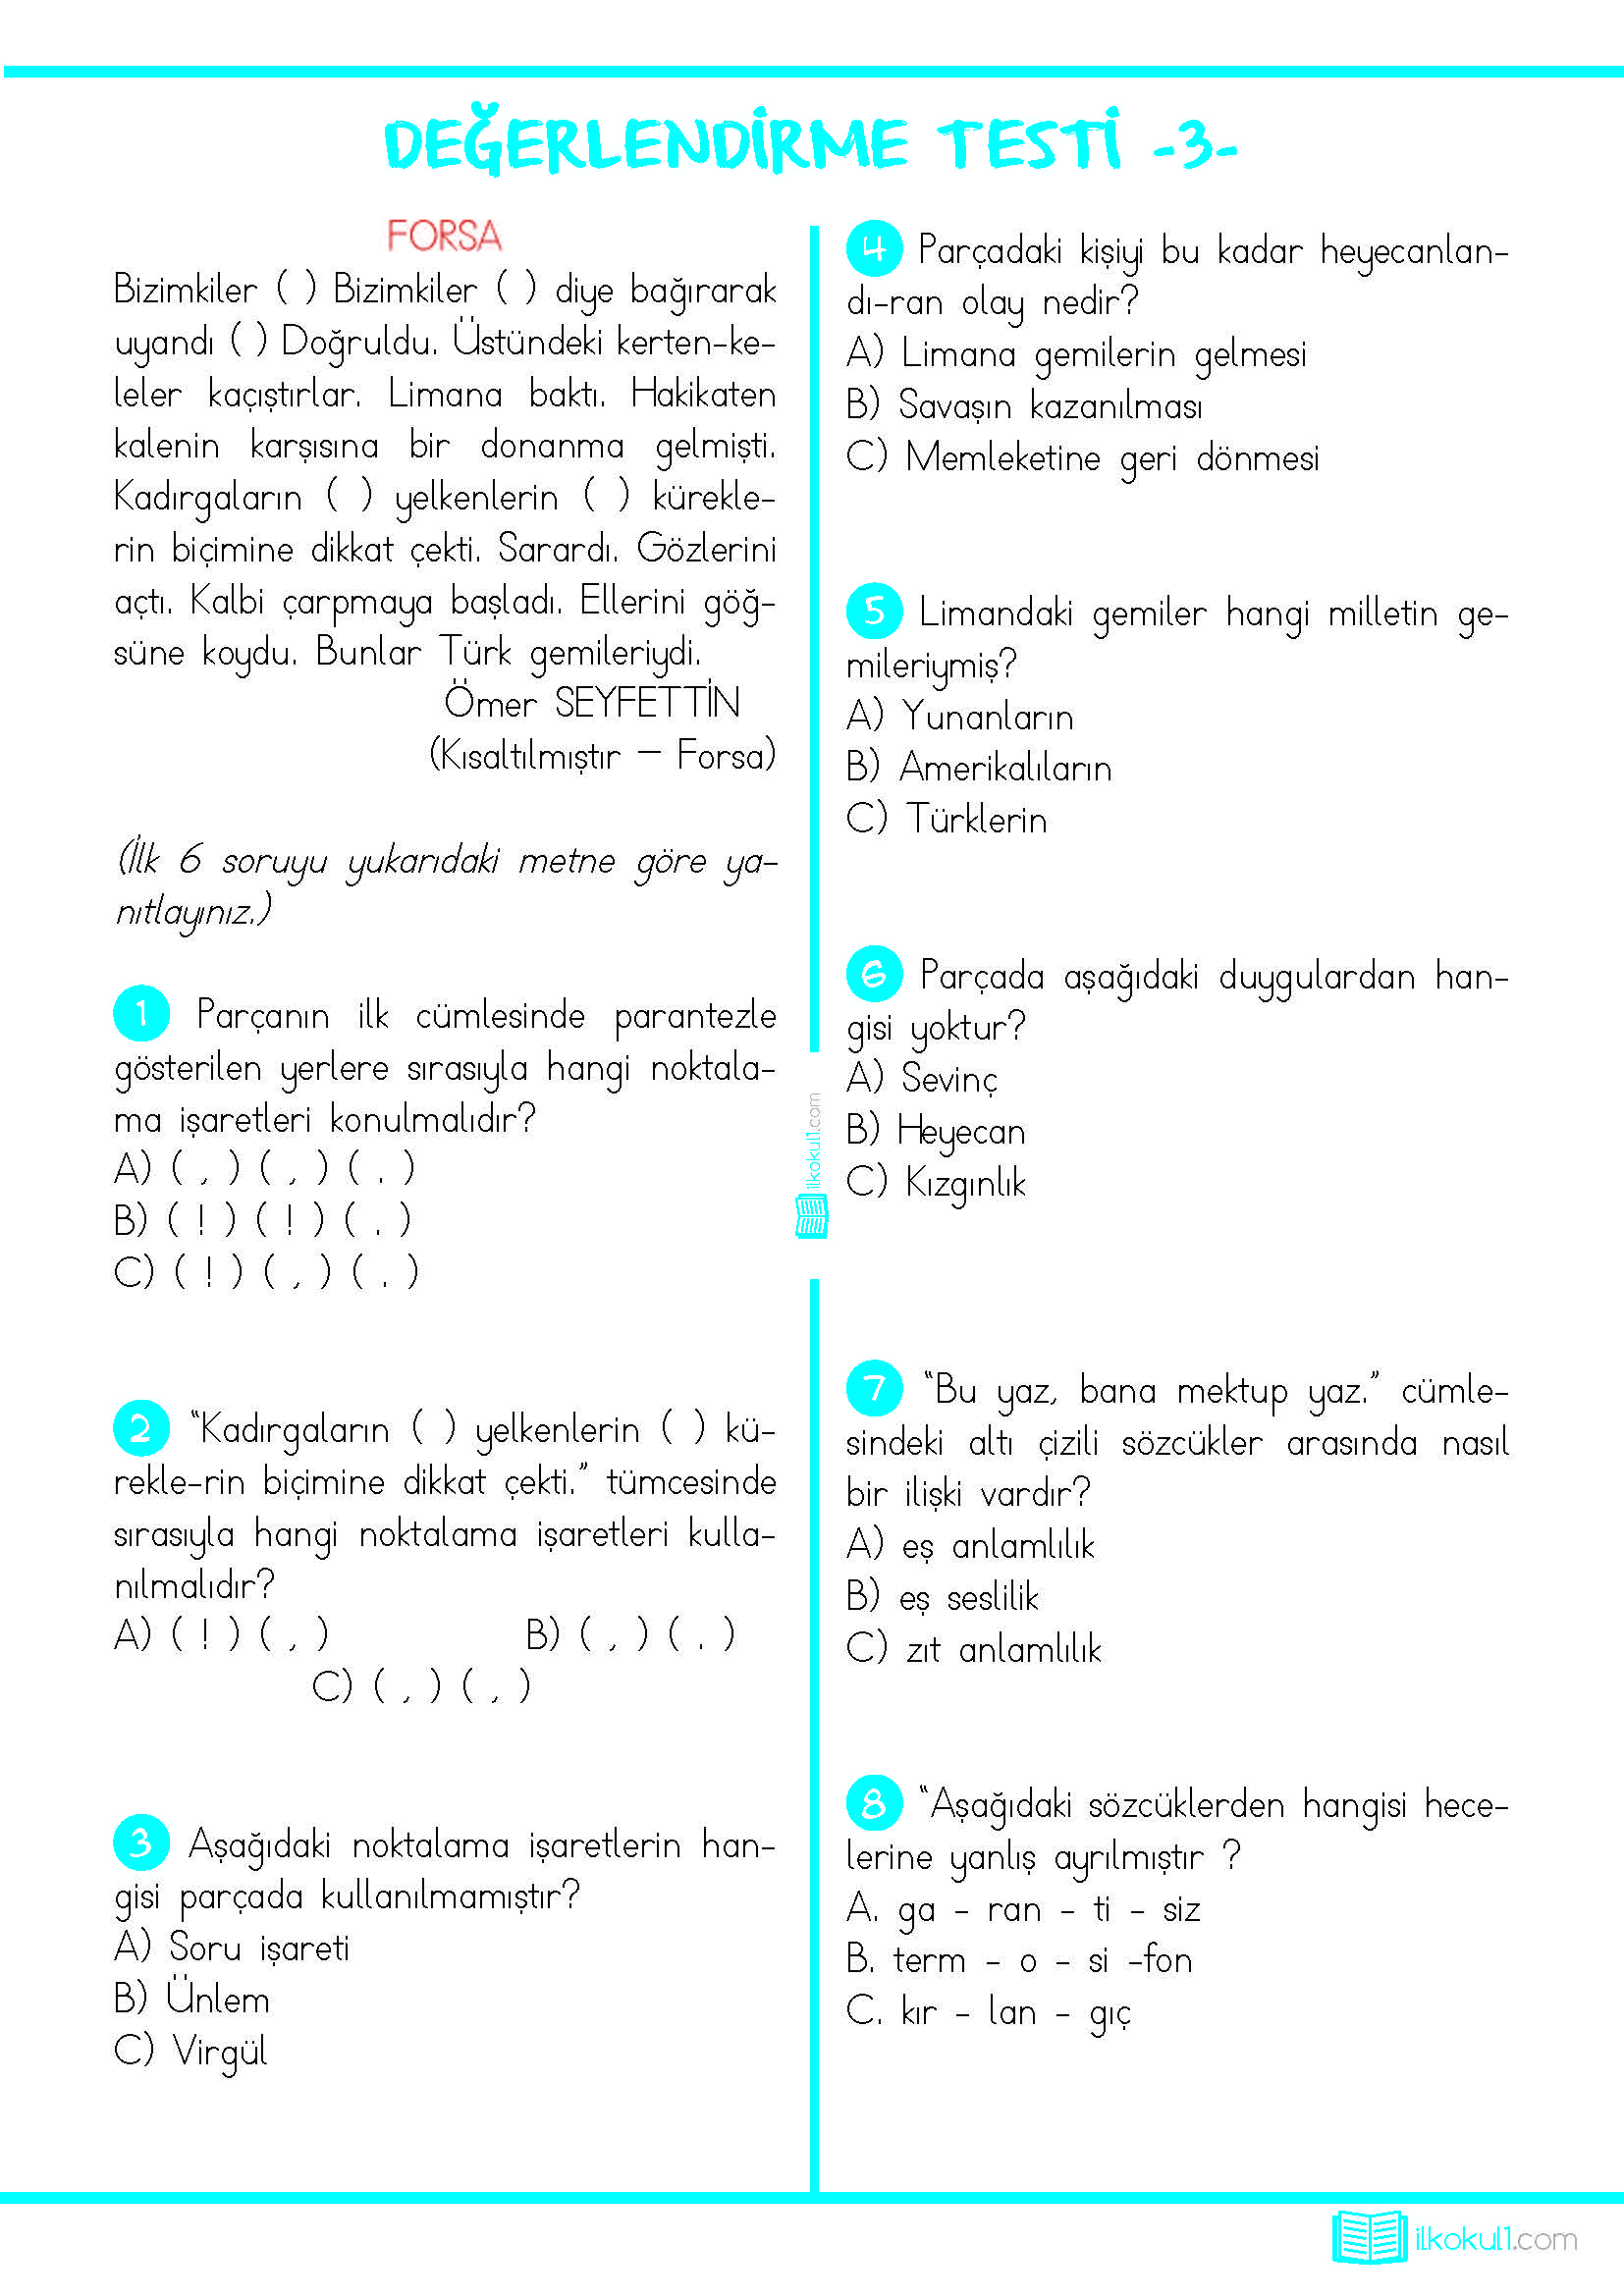 DEĞERLENDİRME TESTİ -3-
FORSA
Bizimkiler ( ) Bizimkiler ( ) diye bağırarak
uyandı ( ) Doğruldu. Üstündeki kerten-ke-
leler kaçıştırlar. Limana baktı. Hakikaten
kalenin karşısına bir donanma gelmişti.
Kadırgaların ( ) yelkenlerin ( ) kürekle-
rin biçimine dikkat çekti. Sarardı. Gözlerini
açtı. Kalbi çarpmaya başladı. Ellerini göğ-
süne koydu. Bunlar Türk gemileriydi.
Ömer SEYFETTİN
(Kısaltılmıştır – Forsa)
(İlk 6 soruyu yukarıdaki metne göre ya-
nıtlayınız.)
1 Parçanın ilk cümlesinde parantezle
gösterilen yerlere sırasıyla hangi noktala-
ma işaretleri konulmalıdır?
A) ( , ) ( , ) ( . )
B) ( ! ) ( ! ) ( . )
C) ( ! ) ( , ) ( . )
2 “Kadırgaların ( ) yelkenlerin ( ) kü-
rekle-rin biçimine dikkat çekti.” tümcesinde
sırasıyla hangi noktalama işaretleri kulla-
nılmalıdır?
A) ( ! ) ( , ) B) ( , ) ( . )
C) ( , ) ( , )
3 Aşağıdaki noktalama işaretlerin han-
gisi parçada kullanılmamıştır?
A) Soru işareti
B) Ünlem
C) Virgül
ilkokul1.com
4 Parçadaki kişiyi bu kadar heyecanlan-
dı-ran olay nedir?
A) Limana gemilerin gelmesi
B) Savaşın kazanılması
C) Memleketine geri dönmesi
5 Limandaki gemiler hangi milletin ge-
mileriymiş?
A) Yunanların
B) Amerikalıların
C) Türklerin
6 Parçada aşağıdaki duygulardan han-
gisi yoktur?
A) Sevinç
B) Heyecan
C) Kızgınlık
7 “Bu yaz, bana mektup yaz.” cümle-
sindeki altı çizili sözcükler arasında nasıl
bir ilişki vardır?
A) eş anlamlılık
B) eş seslilik
C) zıt anlamlılık
8 “Aşağıdaki sözcüklerden hangisi hece-
lerine yanlış ayrılmıştır ?
A. ga - ran - ti - siz
B. term - o - si -fon
C. kır - lan - gıç
ilkokul1.com